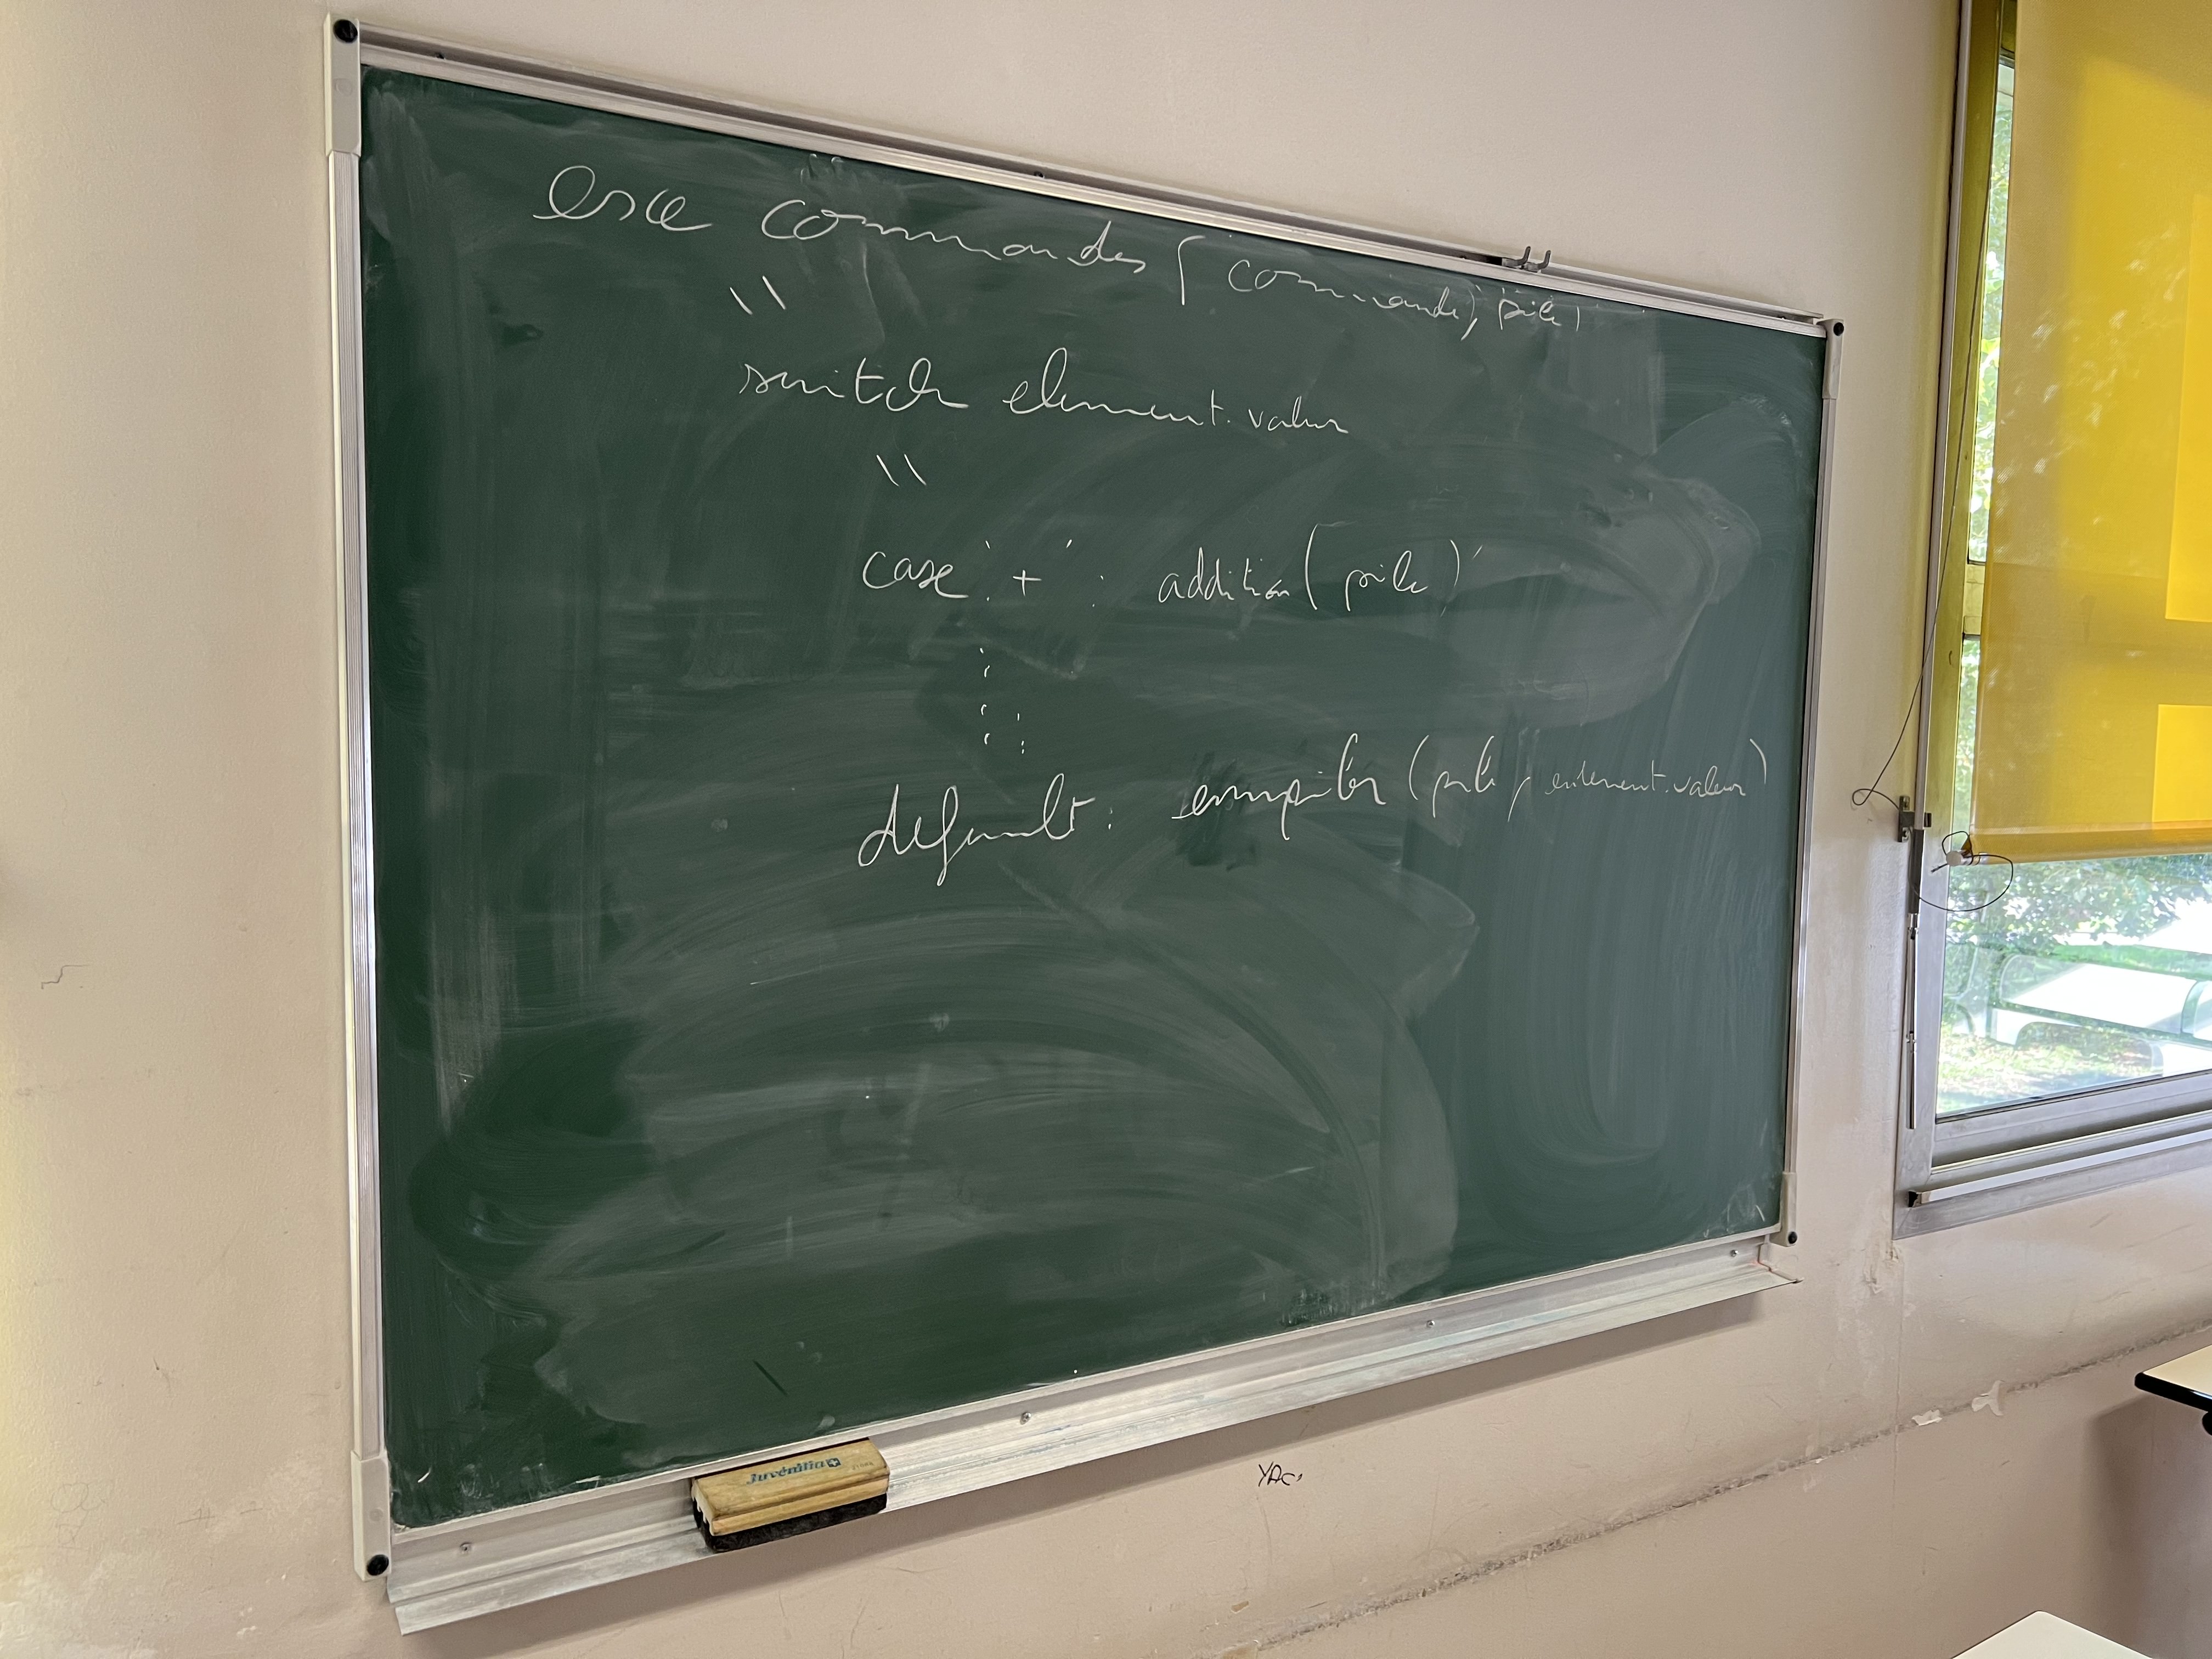 exe commandes (commande, pile)
\\
switch element.valeur
\\
case '+' : addition(pile)
:
: :
default : empiler (pile, element.valeur)
Juvénilia
YAC